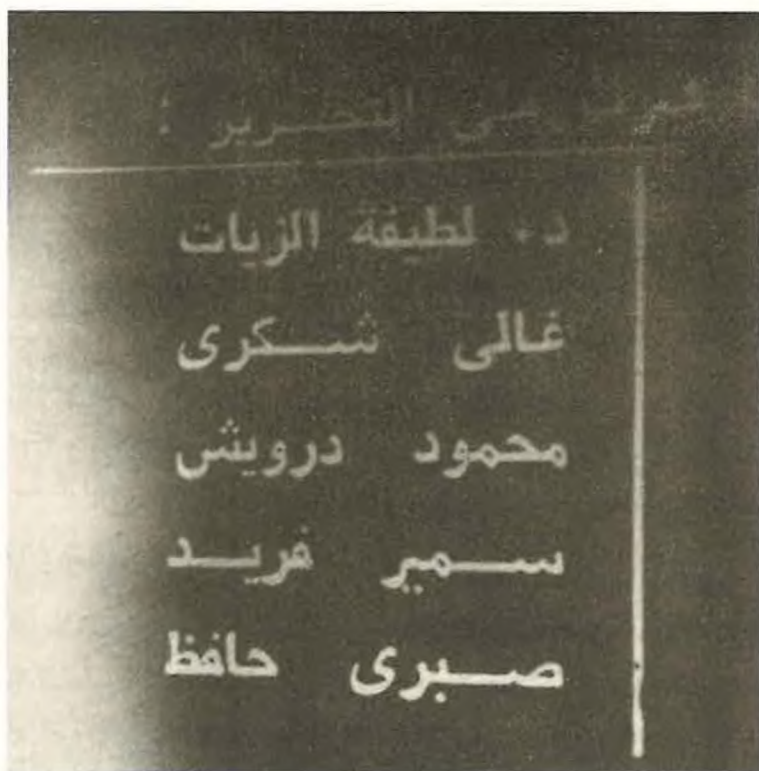 على التحرير :
د. لطيفة الزيات
غالى شكرى
محمود درويش
سمير فريد
صبرى حافظ